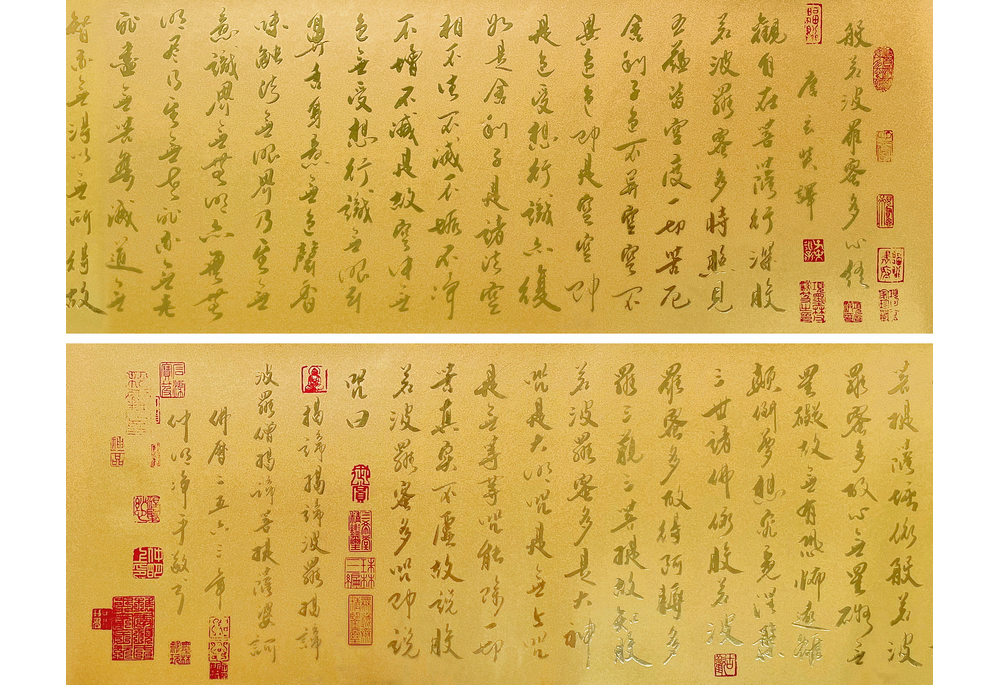 般若波羅蜜多心經
唐玄奘譯
觀自在菩薩行深般
若波羅蜜多時照見
五蘊皆空度一切苦厄
舍利子色不異空空不
異色色即是空空即
是色受想行識亦復
如是舍利子是諸法空
相不生不滅不垢不淨
不增不減是故空中無
色無受想行識無眼耳
鼻舌身意無色聲香
味觸法無眼界乃至無
意識界無無明亦無無
明盡乃至無老死亦無老
死盡無苦集滅道無
智亦無得以無所得故
菩提薩埵依般若波
羅蜜多故心無罣礙無
罣礙故無有恐怖遠離
顛倒夢想究竟涅槃
三世諸佛依般若波
羅蜜多故得阿耨多
羅三藐三菩提故知般
若波羅蜜多是大神
咒是大明咒是無上咒
是無等等咒能除一切
苦真實不虛故說般
若波羅蜜多咒即說
咒曰
揭諦揭諦波羅揭諦
波羅僧揭諦菩提薩婆訶
佛曆二五六三年
仲明淨手敬